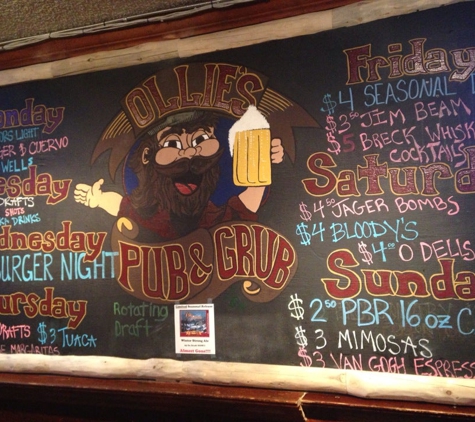 nday
RS LIGHT
ER & CUERVO
WELLS
esday
DRAFTS
SHOTS
DRINKS
dnesday
BURGER NIGHT
ursday
RAFTS $3 TUACA
MARGARITAS
OLLIE'S
PUB & GRUB
Rotating
Draft
Friday
$4 SEASONAL
$3.50 JIM BEAM
$5 BRECK WHISK
COCKTAILS
Saturd
$4.50 JAGER BOMBS
$4 BLOODY'S
$4.00 O DELLS
Sunda
$2.50 PBR 16 oz C
$3 MIMOSAS
$3 VAN GOGH ESPRESS